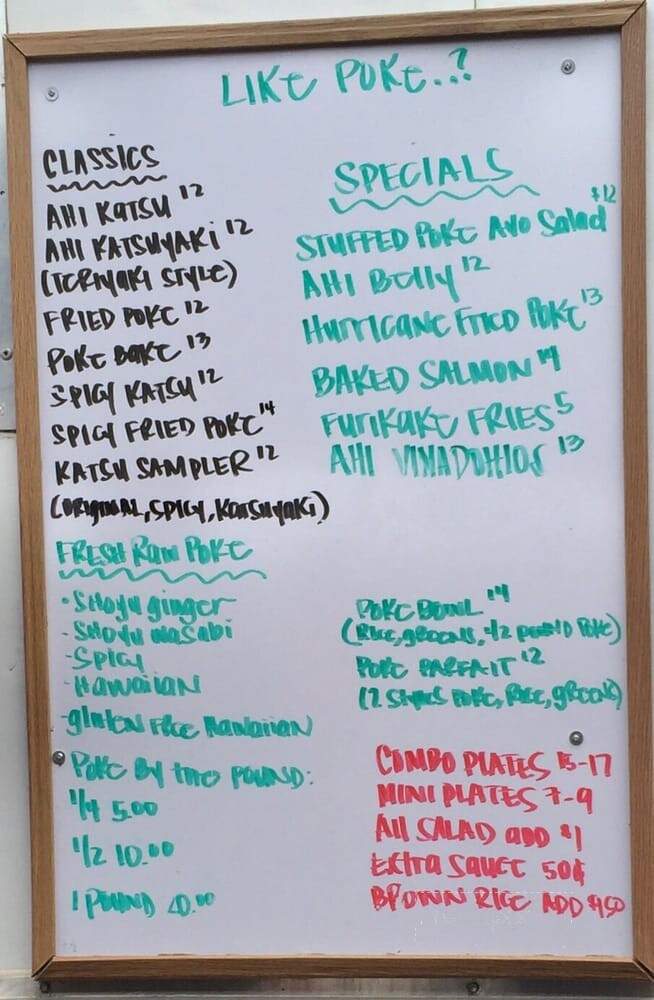 LIKE POKE..?
CLASSICS
AHI KATSU 12
AHI KATSUYAKI 12
(TERIYAKI STYLE)
FRIED POKE 12
POKE BAKE 13
SPICY KATSU 12
SPICY FRIED POKE 14
KATSU SAMPLER 12
(ORIGINAL, SPICY, KATSUYAKI)
SPECIALS
$12
STUFFED POKE AVO Salad
AHI Belly 12
HURRICANE FRIED POKE 13
BAKED SALMON 14
FURIKAKE FRIES 5
AHI 13
FRESH RAW POKE
• SHOYU ginger
- SHOYU wasabi
- SPICY
- HAWAIIAN
- gluten FREE HAWAIIAN
POKE BY THE POUND:
1/4 5.00
1/2 10.00
1 POUND 20.00
POKE BOWL 14
(RICE, greens, 1/2 POUND POKE)
POKE PARFAIT 12
(2 STYLES POKE, RICE, greens)
COMBO PLATES 15-17
MINI PLATES 7-9
All SALAD add $1
EXTRA SAUCE 50¢
BROWN RICE ADD